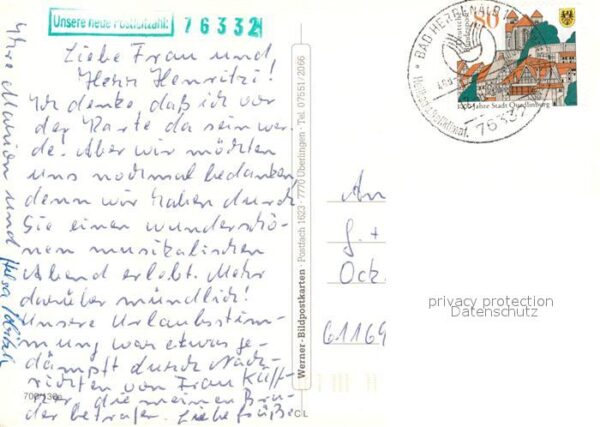 Unsere neue Postleitzahl: 76332
Liebe Frau und
Herr Henritzi!
Ich denke daß ich vor
der Karte da sein wer-
de. Aber wir möchten
uns nochmal bedanken,
denn wir haben durch
Sie einen wunderschö-
nen musikalischen
Abend erlebt. Mehr
darüber mündlich!
Unsere Urlaubsstim-
mung war etwas ge-
dämpft durch Nach-
richten von Frau
die meinen Bru-
der betrafen. Liebe Grüße
Ihre Marion und
Werner-Bildpostkarten · Postfach 1623 · 7770 Überlingen · Tel. 07551/2066
80
Deutsche Bundespost
1000 Jahre Stadt Quedlinburg
BAD HERRENALB 1
76332
An
G. +
Ock
61169
privacy protection
Datenschutz